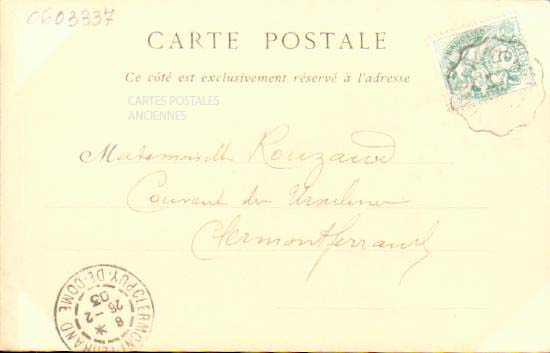 0603337
CARTE POSTALE
Ce côté est exclusivement réservé à l'adresse
CARTES POSTALES
ANCIENNES
Mademoiselle Rouzaud
Couvent des Ursulines
Clermontferrand
CLERMONT-FERRAND PUY-DE-DOME
8-2
26
03